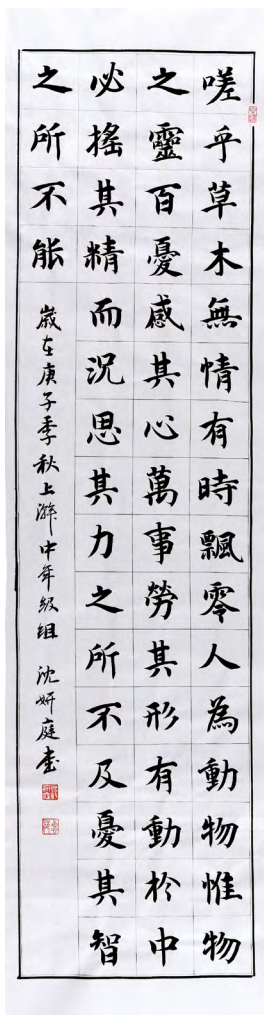 嗟乎草木無情有時飄零人為動物惟物
之靈百憂感其心萬事勞其形有動於中
必搖其精而況思其力之所不及憂其智
之所不能
歲在庚子季秋上澣中年級組 沈妍庭書